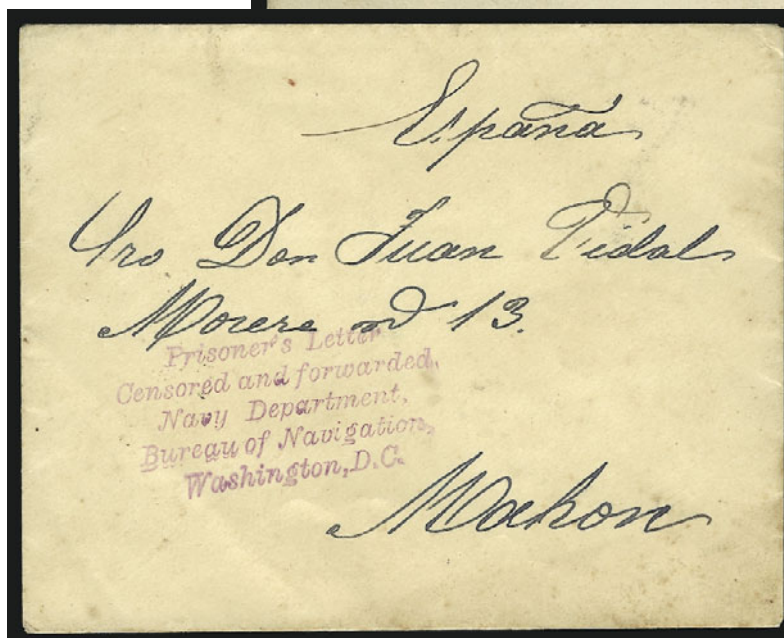 España
Don Juan Vidal
Morere nº 13.
Prisoner's Letter
Censored and forwarded,
Navy Department,
Bureau of Navigation,
Washington, D.C.
Mahon